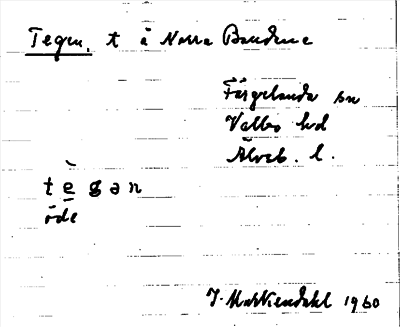 Tegen, t å Norra Bondene
Färgelanda sn
Valbo hd
Älvsb. l.
tègan
öde
J. Mattiendahl 1960